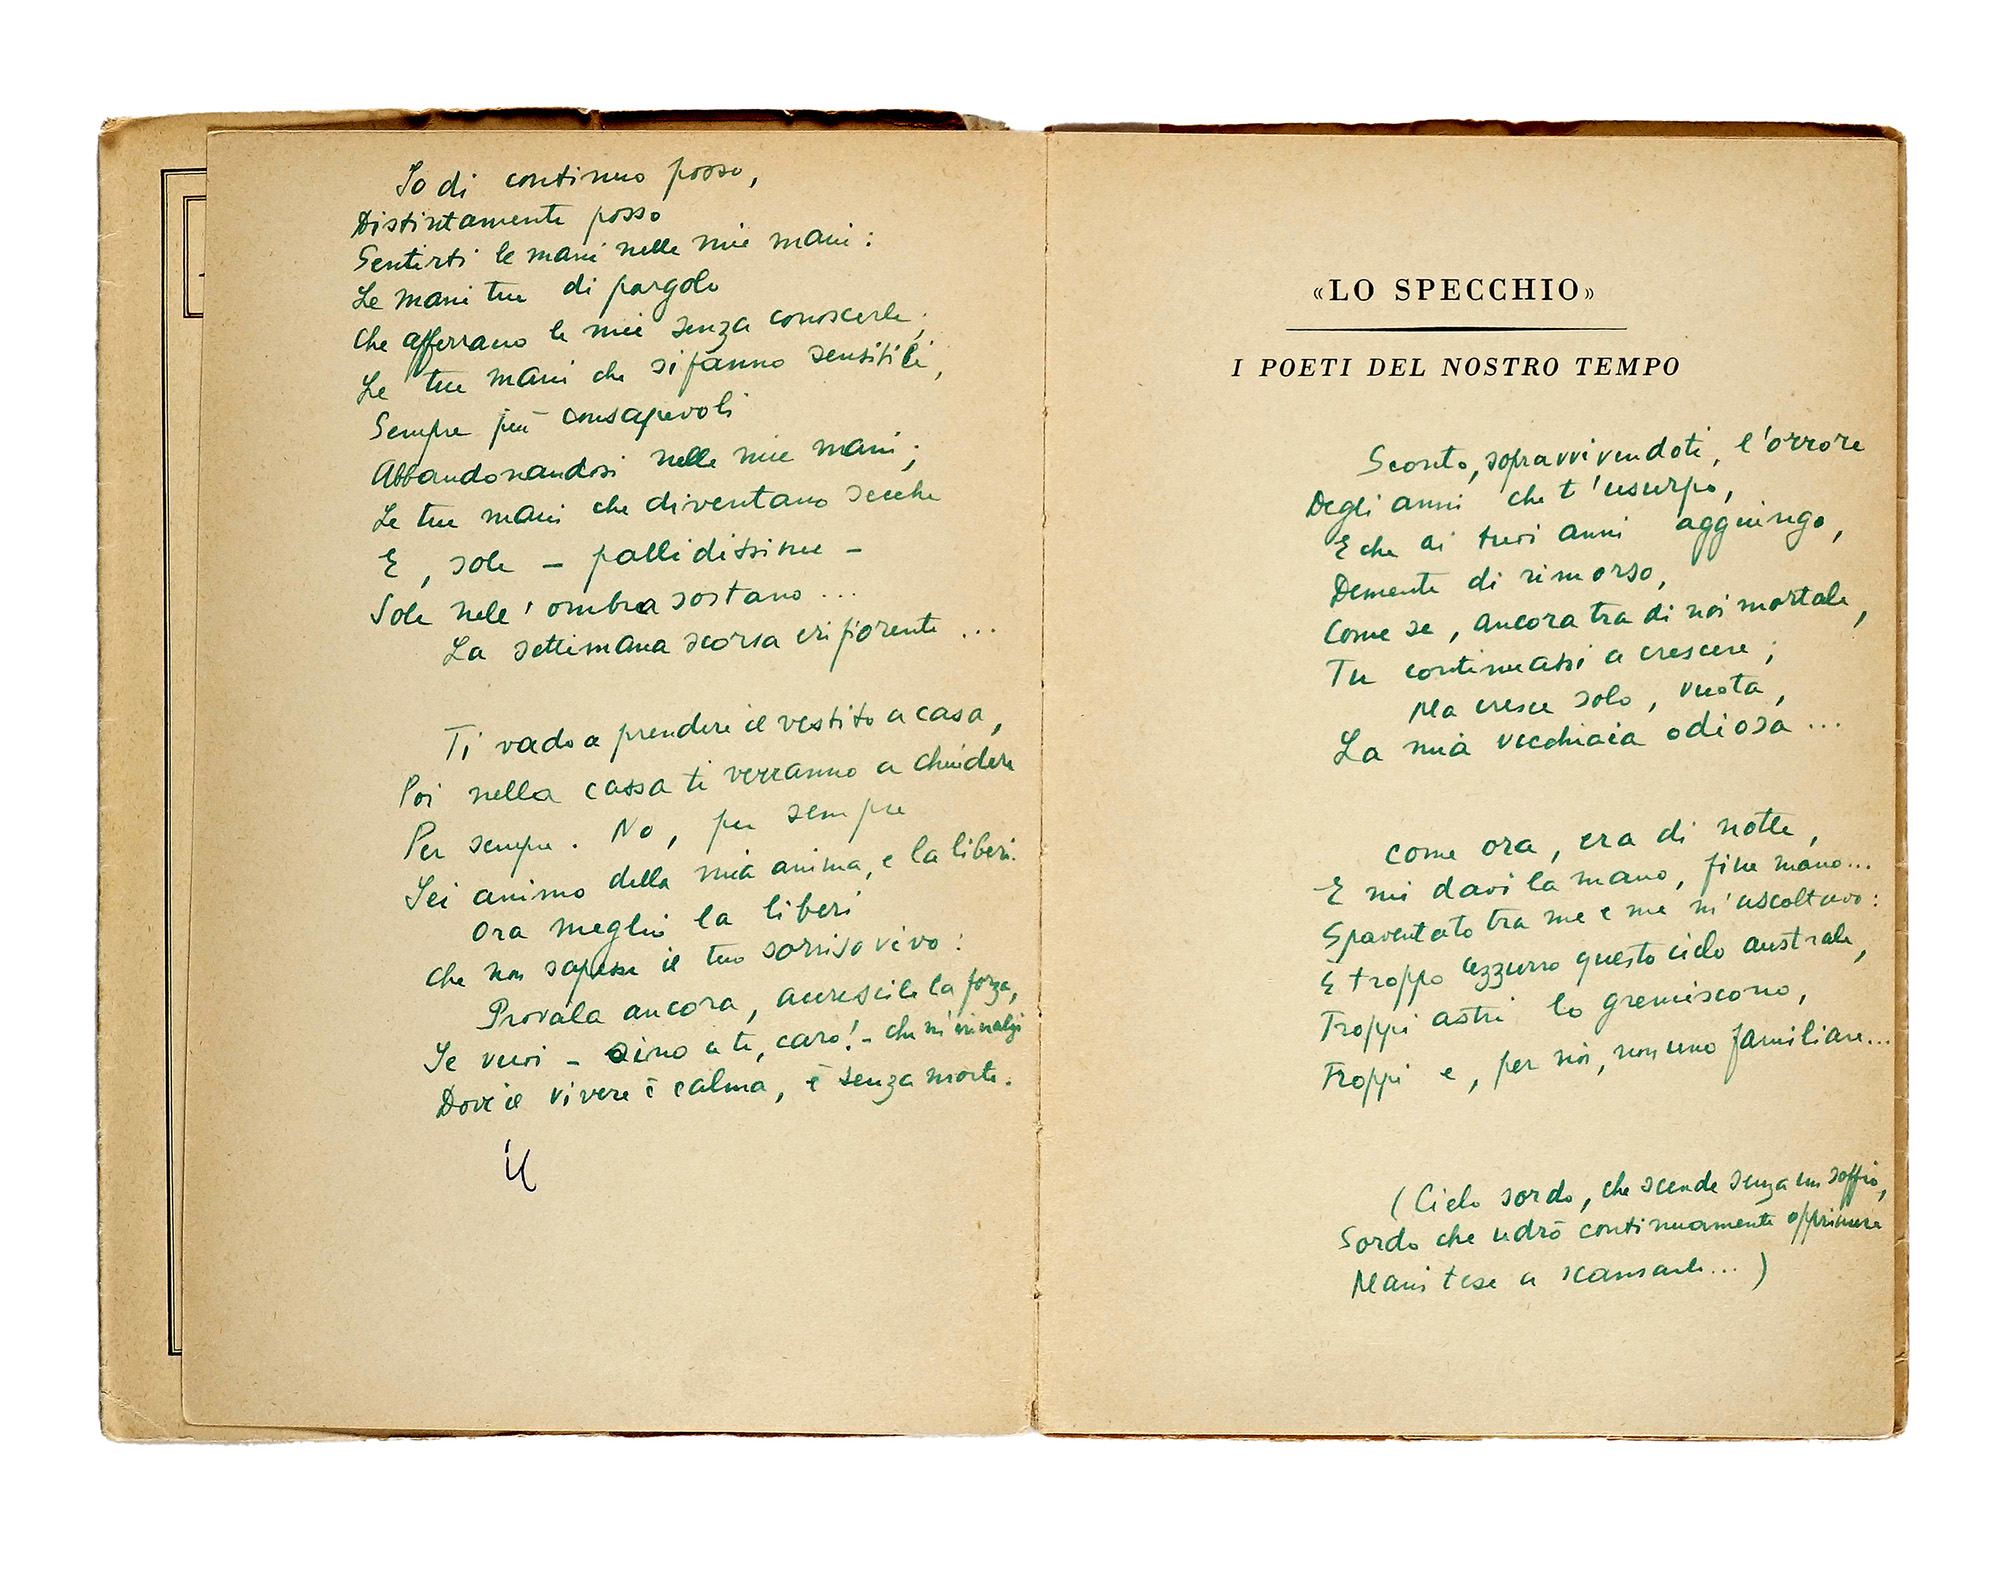 Io di continuo posso,
Distintamente posso
Sentirti le mani nelle mie mani:
Le mani tue di pargolo
Che afferrano le mie senza conoscerle;
Le tue mani che si fanno sensibili,
Sempre più consapevoli
Abbandonandosi nelle mie mani;
Le tue mani che diventano secche
E, sole – pallidissime –
Sole nell'ombra sostano...
La settimana scorsa eri fiorente...
Ti vado a prendere il vestito a casa,
Poi nella cassa ti verranno a chiudere
Per sempre. No, per sempre
Sei animo della mia anima, e la liberi.
Ora meglio la liberi
Che non sapesse il tuo sorriso vivo:
Provala ancora, accrescile la forza,
Se vuoi – sino a te, caro! – che m'innalzi
Dove il vivere è calma, è senza morte.
«LO SPECCHIO»
I POETI DEL NOSTRO TEMPO
Sconto, sopravvivendoti, l'orrore
Degli anni che t'usurpo,
E che ai tuoi anni aggiungo,
Demente di rimorso,
Come se, ancora tra di noi mortale,
Tu continuassi a crescere;
Ma cresce solo, vuota,
La mia vecchiaia odiosa...
Come ora, era di notte,
E mi davi la mano, fine mano...
Spaventato tra me e me m'ascoltavo:
È troppo azzurro questo cielo australe,
Troppi astri lo gremiscono,
Troppi e, per noi, non uno familiare...
(Cielo sordo, che scende senza un soffio,
Sordo che udrò continuamente opprimere
Mani tese a scansarlo...)